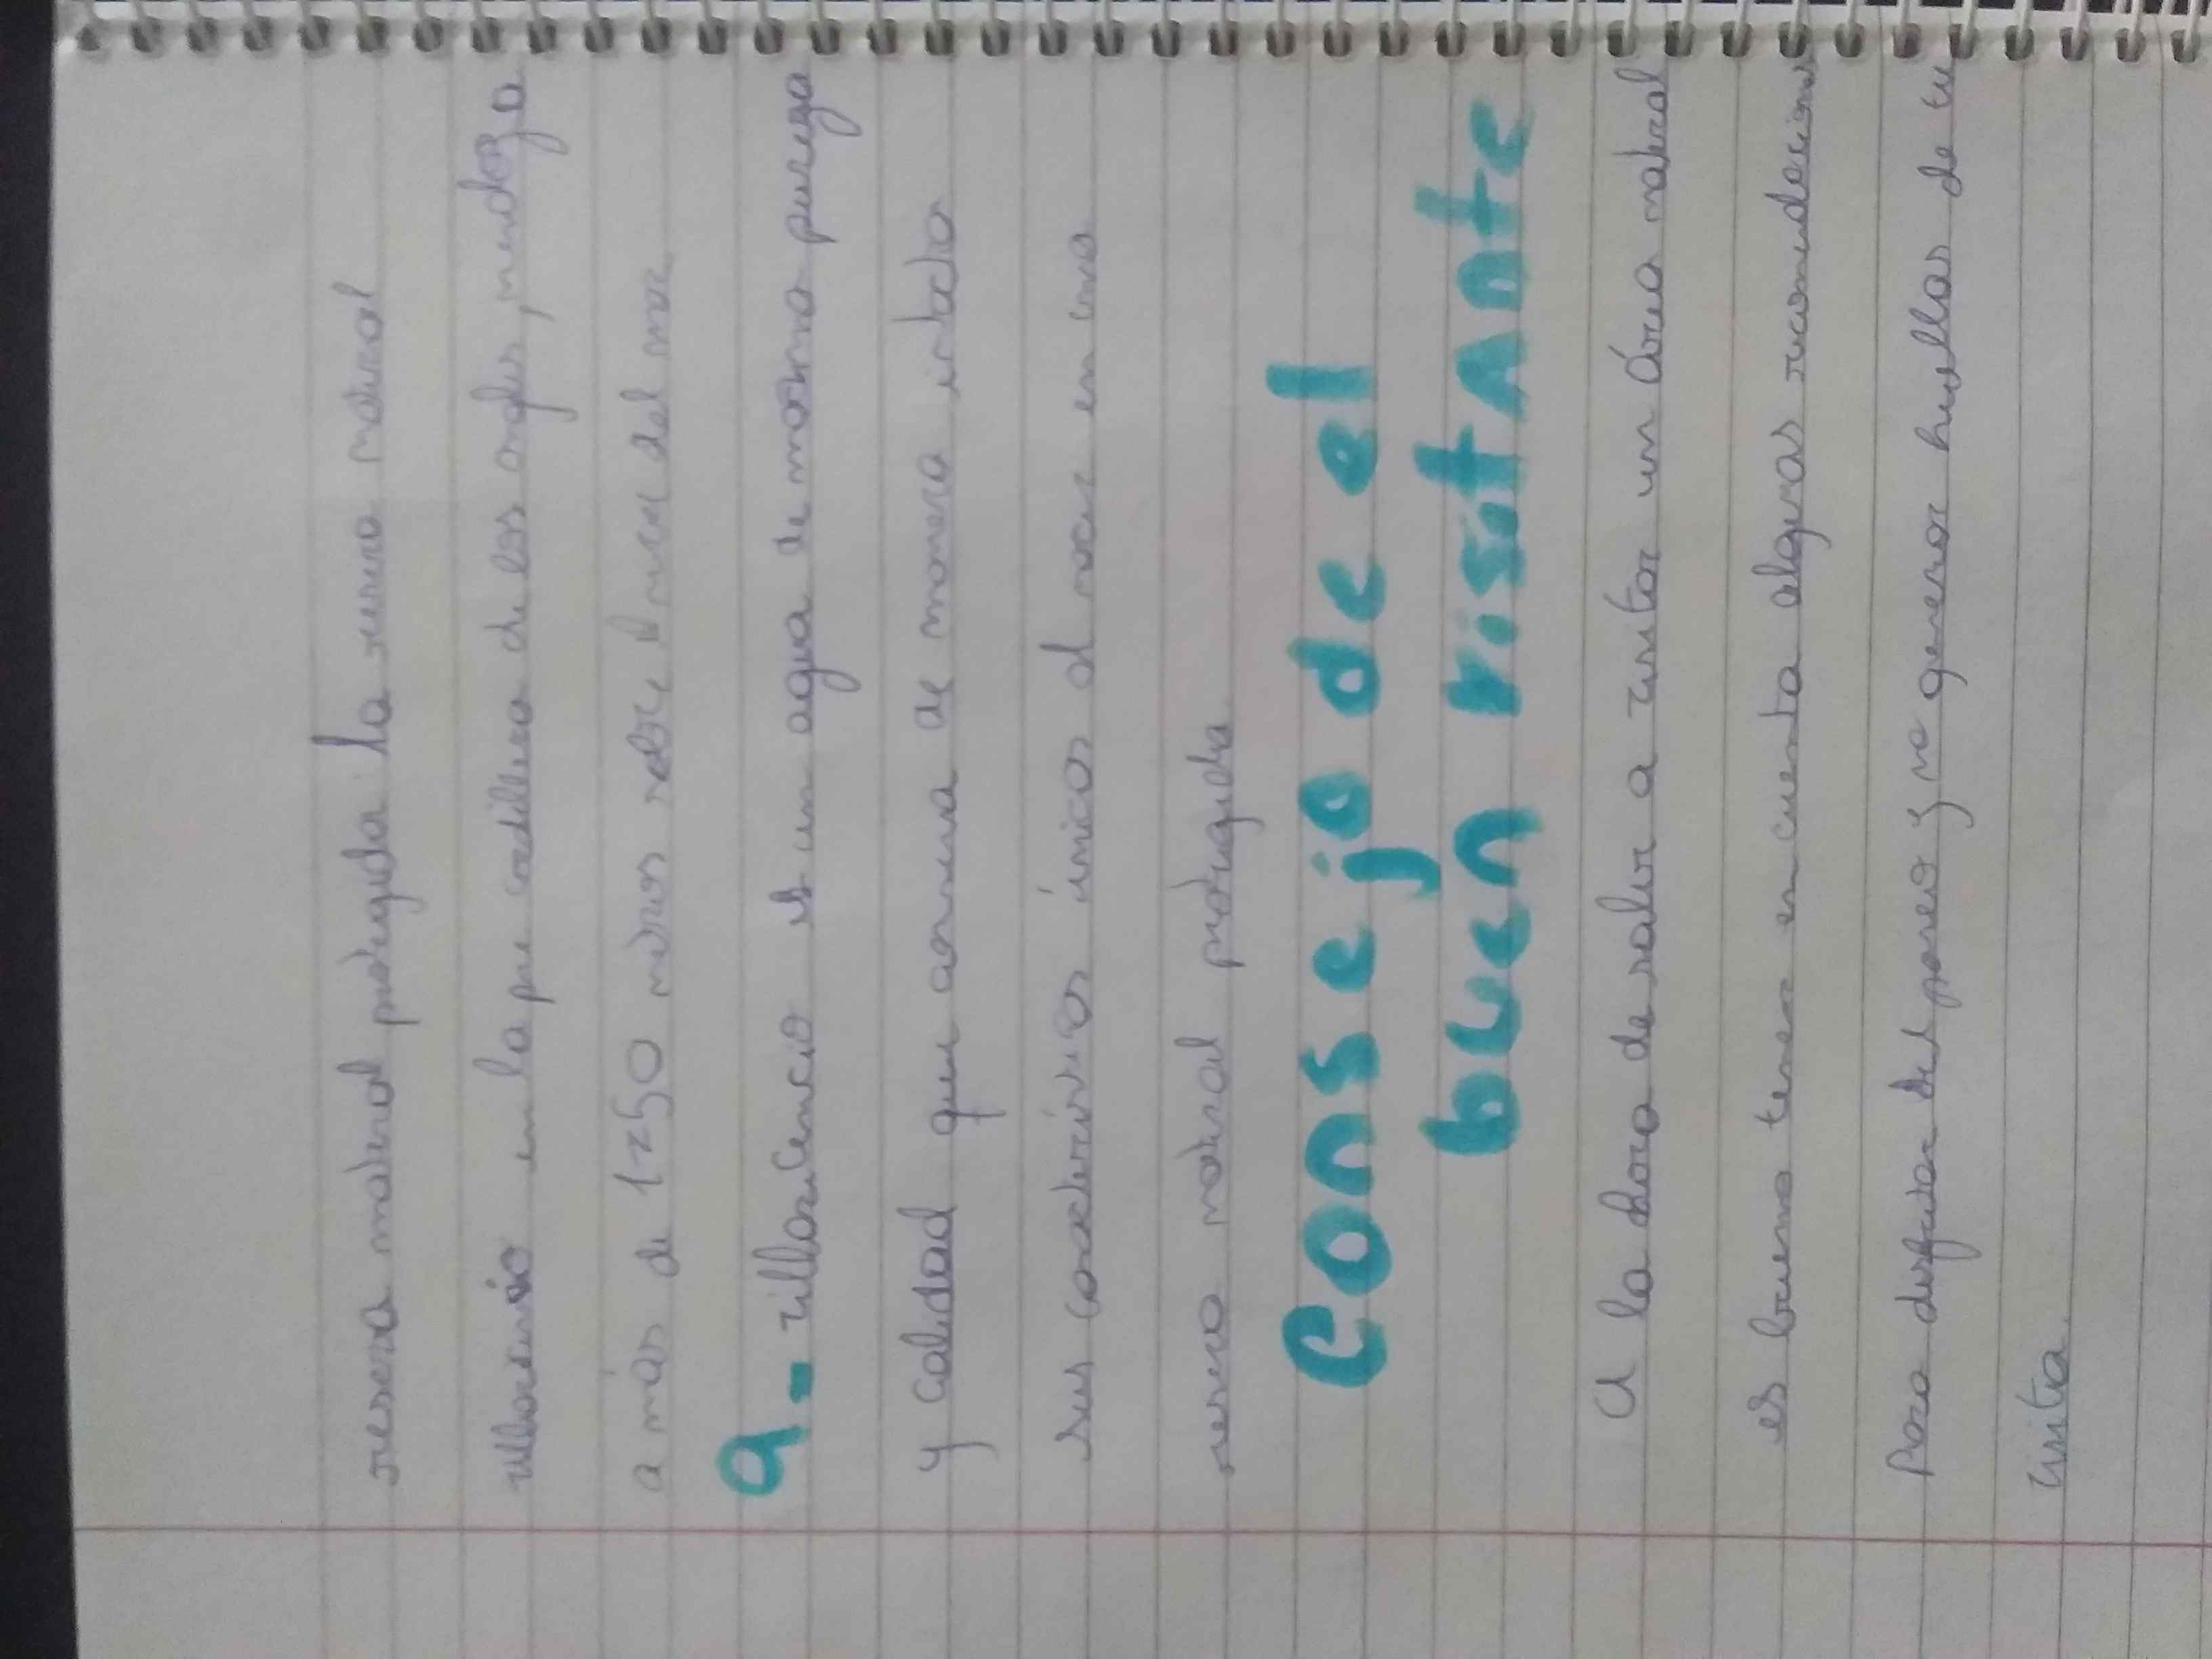 reserva natural protegida la reserva natural
villavicencio en la pre cordillera de los andes, mendoza
a más de 1750 metros sobre el nivel del mar
9- villavicencio es un agua de marina pureza
y calidad que conserva de manera intacta
sus caracteristicas únicas al nacer en una
reserva natural protegida
Consejo de el
buen visitante
A la hora de salir a visitar un Área natural
es bueno tener en cuenta algunas recomendaciones
Para disfrutar del paseo y no generar huellas de tu
visita.